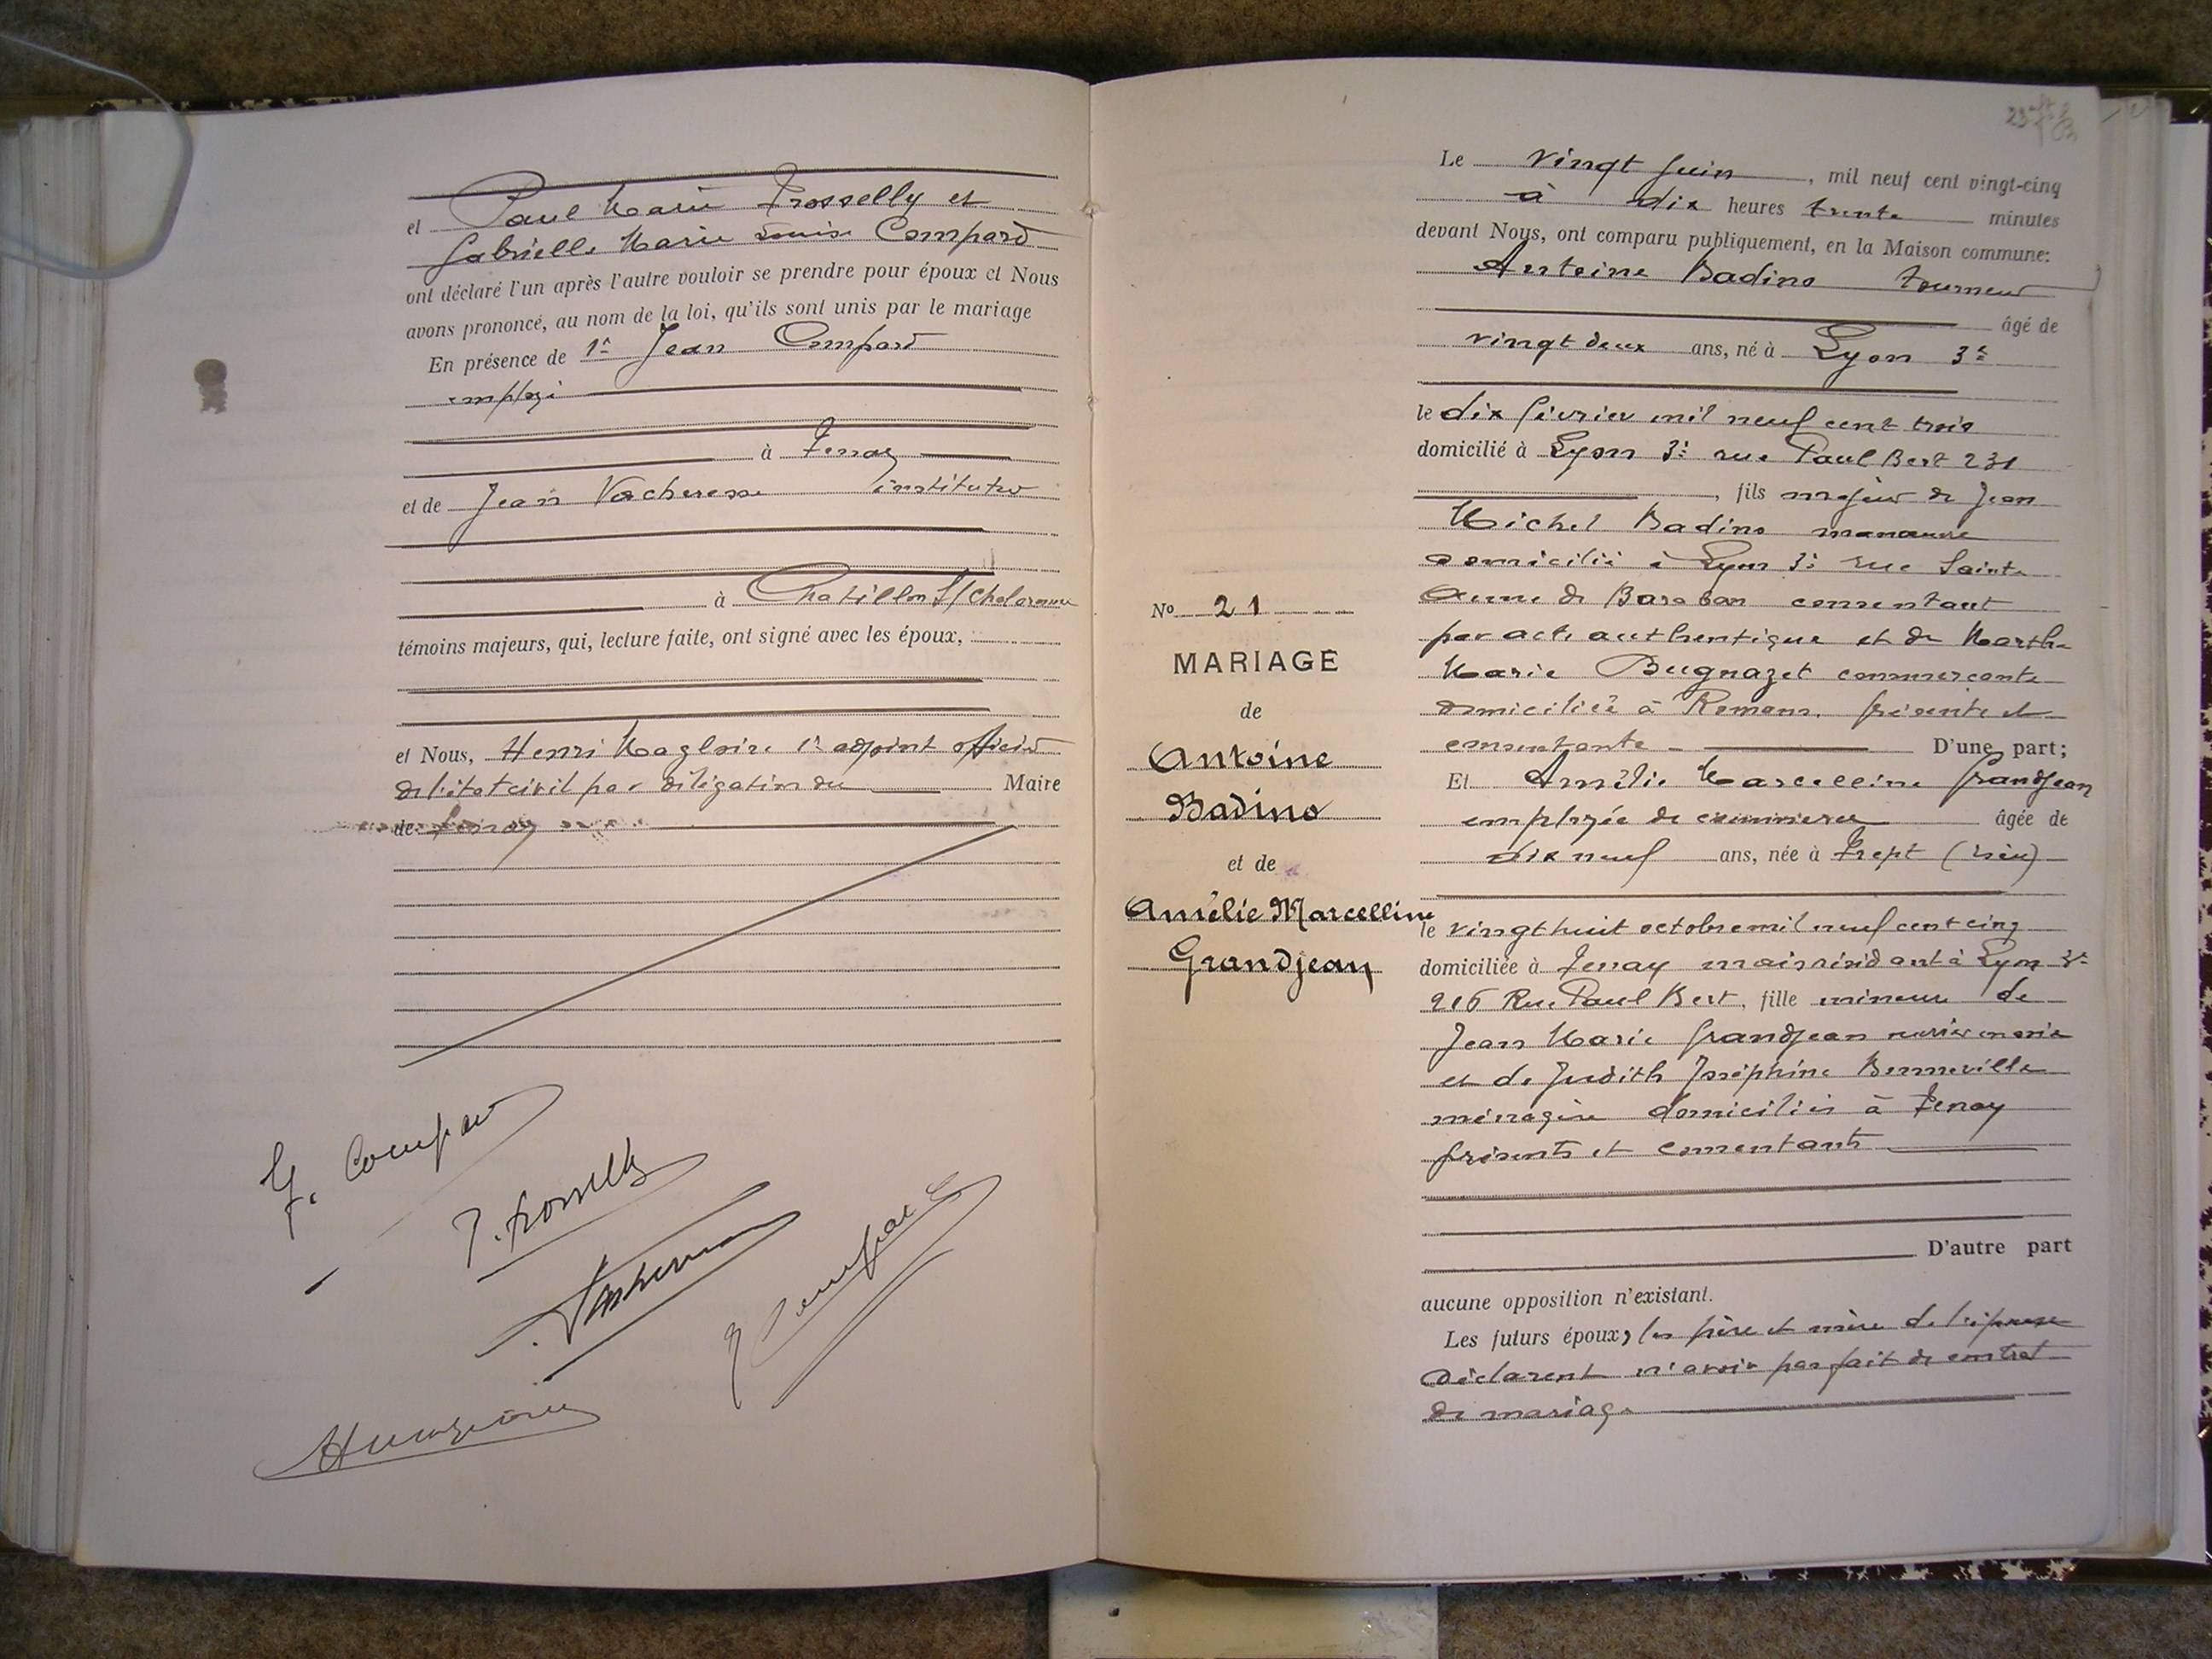 et Paul Marie Trosselly et
Gabrielle Marie Louise Compard
ont déclaré l'un après l'autre vouloir se prendre pour époux et Nous
avons prononcé, au nom de la loi, qu'ils sont unis par le mariage
En présence de 1º Jean Compard
employé
à Tenay
et de Jean Vacheresse instituteur
à Chatillon s/Chalaronne
témoins majeurs, qui, lecture faite, ont signé avec les époux,
et Nous, Henri Magloire 1er adjoint officier
de l'état civil par délégation du Maire
de Tenay
G. Compard
P. Trosselly
J Compard
Le vingt Juin, mil neuf cent vingt-cinq
à dix heures trente minutes
devant Nous, ont comparu publiquement, en la Maison commune:
Antoine Badino tourneur
âgé de
vingt deux ans, né à Lyon 3e
le dix février mil neuf cent trois
domicilié à Lyon 3e rue Paul Bert 231
, fils majeur de Jean
Michel Badino manœuvre
domicilié à Lyon 3e rue Sainte
Anne de Baraban consentant
par acte authentique et de Marthe
Marie Bugnazet commerçante
domiciliée à Romans, présente et
consentante D'une part;
Et Amélie Marcelline Grandjean
employée de commerce âgée de
dix neuf ans, née à Trept (Isère)
le vingt huit octobre mil neuf cent cinq
domiciliée à Tenay mais résidant à Lyon 3e
216 Rue Paul Bert, fille mineure de
Jean Marie Grandjean
et de Judith Joséphine Benneville
ménagère domiciliés à Tenay
présents et consentants
D'autre part
aucune opposition n'existant.
Les futurs époux, les père et mère de l'épouse
déclarent n'avoir pas fait de contrat
de mariage
No 21
MARIAGE
de
Antoine
Badino
et de
Amélie Marcelline
Grandjean